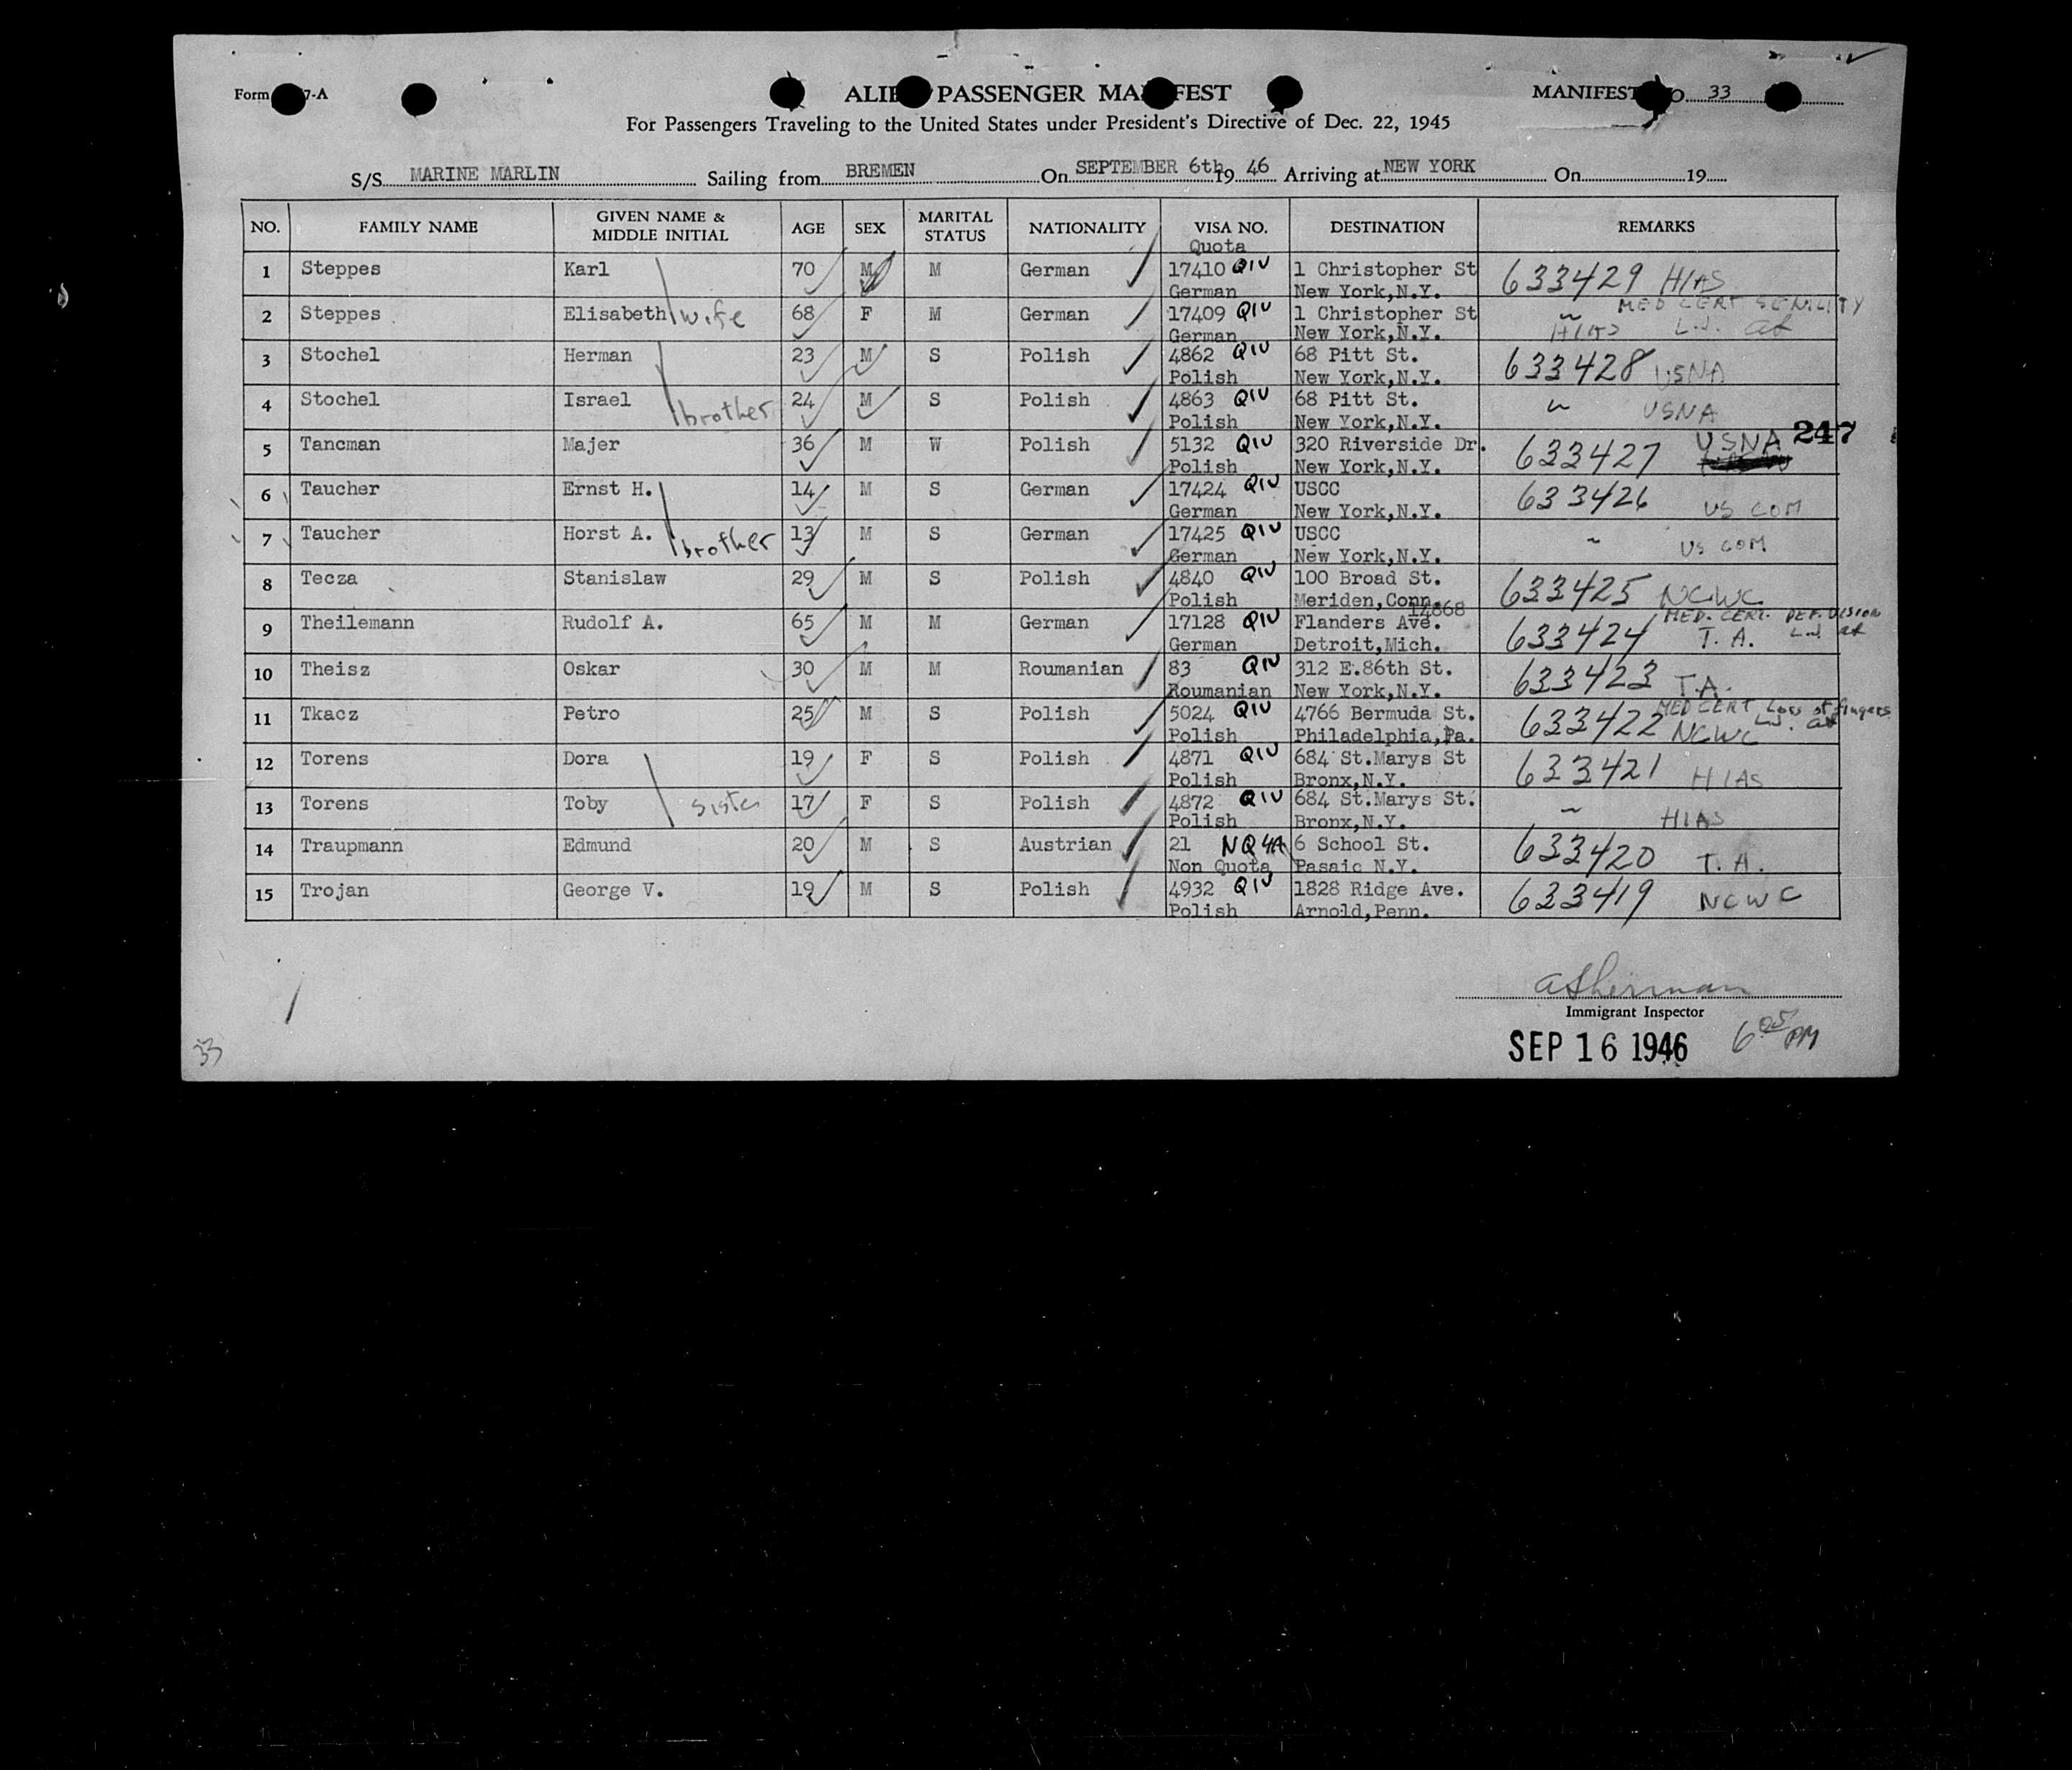 Form 7-A
ALIE PASSENGER MA FEST
MANIFEST O 33
For Passengers Traveling to the United States under President's Directive of Dec. 22, 1945
S/S MARINE MARLIN Sailing from BREMEN On SEPTEMBER 6th 19 46 Arriving at NEW YORK On 19
NO. FAMILY NAME GIVEN NAME & MIDDLE INITIAL AGE SEX MARITAL STATUS NATIONALITY VISA NO. DESTINATION REMARKS
Quota
1 Steppes Karl 70 M M German 17410 QIV 1 Christopher St 633429 HIAS
German New York,N.Y.
MED CERT SENILITY
2 Steppes Elisabeth wife 68 F M German 17409 QIV 1 Christopher St
German New York,N.Y. HIAS
3 Stochel Herman 23 M S Polish 4862 QIV 68 Pitt St. 633428 USNA
Polish New York,N.Y.
4 Stochel Israel brother 24 M S Polish 4863 QIV 68 Pitt St. USNA
Polish New York,N.Y.
247
5 Tancman Majer 36 M W Polish 5132 QIV 320 Riverside Dr. 633427 USNA
Polish New York,N.Y.
6 Taucher Ernst H. 14 M S German 17424 QIV USCC 633426 US COM
German New York,N.Y.
7 Taucher Horst A. brother 13 M S German 17425 QIV USCC US COM
German New York,N.Y.
8 Tecza Stanislaw 29 M S Polish 4840 QIV 100 Broad St. 633425 NCWC
Polish Meriden,Conn.
14868 MED. CERT. DEF. VISION
9 Theilemann Rudolf A. 65 M M German 17128 QIV Flanders Ave. 633424 T. A.
German Detroit,Mich.
10 Theisz Oskar 30 M M Roumanian 83 QIV 312 E.86th St. 633423 T.A.
Roumanian New York,N.Y.
MED CERT Loss of fingers
11 Tkacz Petro 25 M S Polish 5024 QIV 4766 Bermuda St. 633422 NCWC
Polish Philadelphia,Pa.
12 Torens Dora 19 F S Polish 4871 QIV 684 St.Marys St 633421 HIAS
Polish Bronx,N.Y.
13 Torens Toby sister 17 F S Polish 4872 QIV 684 St.Marys St. HIAS
Polish Bronx,N.Y.
14 Traupmann Edmund 20 M S Austrian 21 NQ4A 6 School St. 633420 T. A.
Non Quota Pasaic N.Y.
15 Trojan George V. 19 M S Polish 4932 QIV 1828 Ridge Ave. 633419 NCWC
Polish Arnold,Penn.
ASherman
Immigrant Inspector
SEP 16 1946 6 05 PM
33